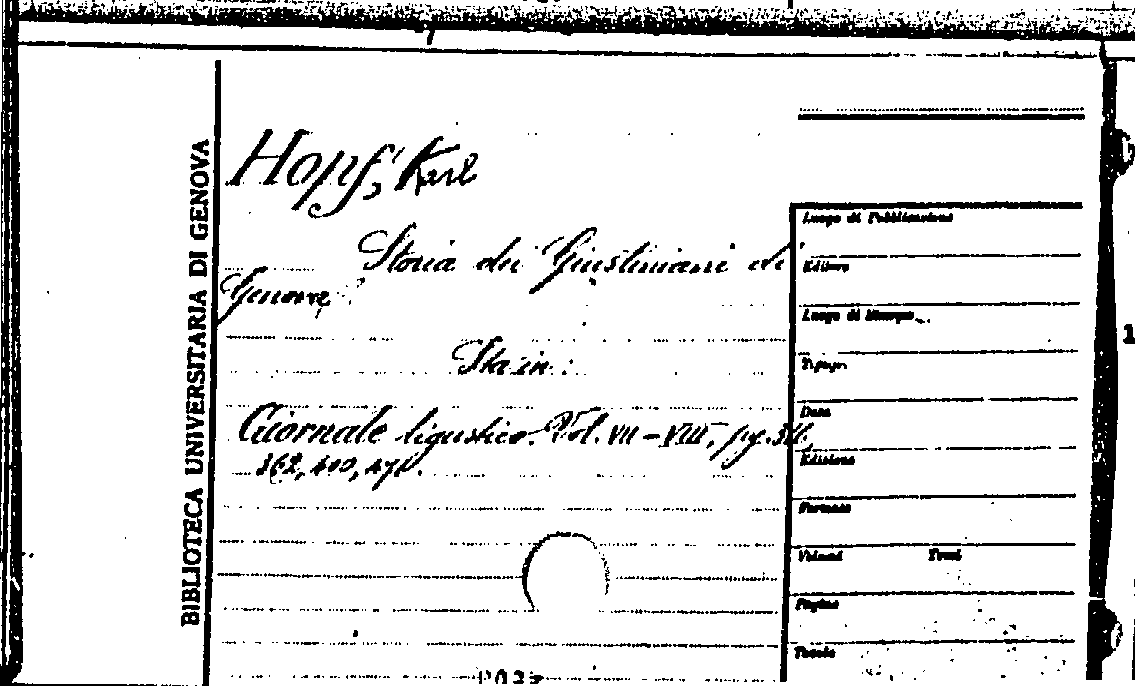 BIBLIOTECA UNIVERSITARIA DI GENOVA
Hopf, Karl
Storia dei Giustiniani di
Genova.
Sta in:
Giornale ligustico. Vol. VII-VIII, pg. 316,
362, 400, 471.
Luogo di Pubblicazione
Editore
Luogo di Stampa
Tipogr.
Data
Edizione
Formato
Volumi Tomi
Pagine
Tavole
1